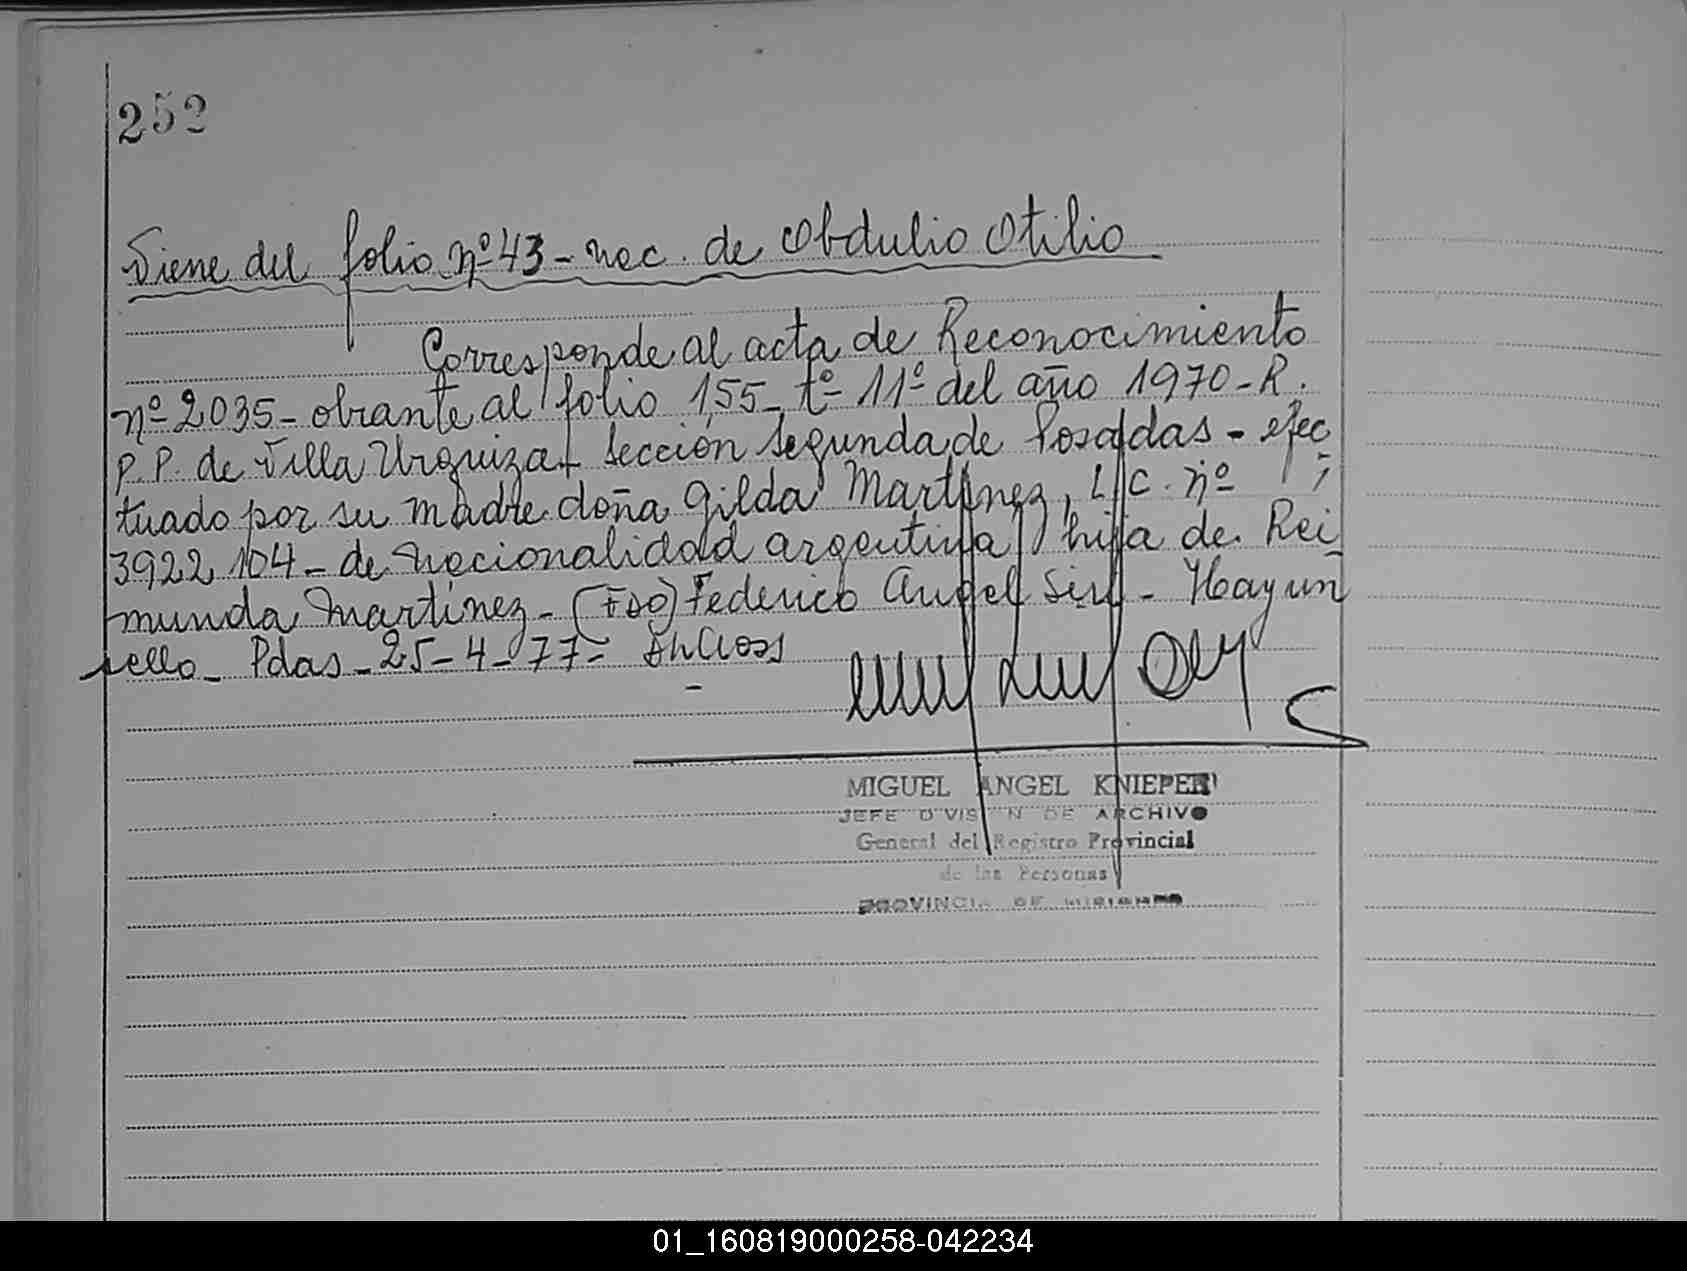 252
Viene del folio nº 43 - nac. de Obdulio Otilio
Corresponde al acta de Reconocimiento
nº 2035 - obrante al folio 155 - tº 11º del año 1970 - R.
P.P. de Villa Urquiza - Sección Segunda de Posadas - efec
tuado por su madre doña Gilda Martínez, L.C. nº
3922104 - de nacionalidad argentina, hija de Rei
munda Martínez - (Fdo) Federico Angel - Hay un
sello - Pdas - 25-4-77 -
MIGUEL ANGEL KNIEPER
JEFE DIVISION DE ARCHIVO
General del Registro Provincial
de las Personas
PROVINCIA DE MISIONES
01_160819000258-042234